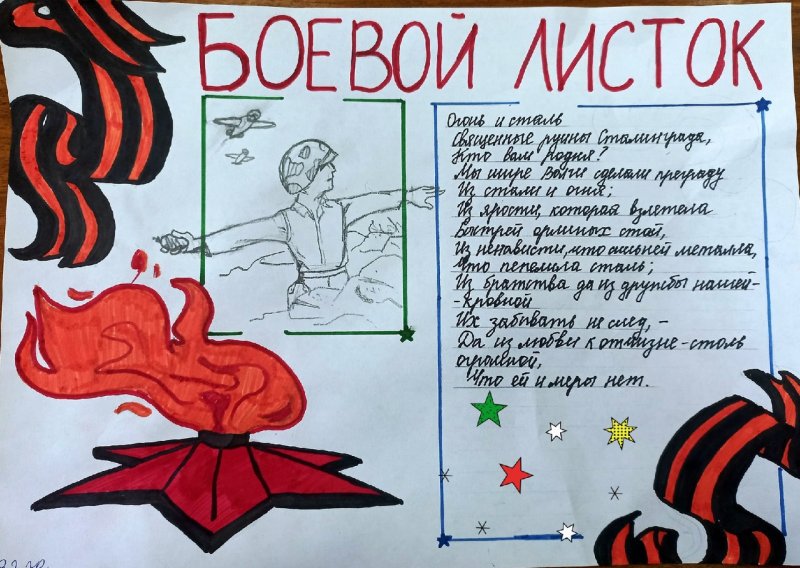 БОЕВОЙ ЛИСТОК
Огонь и сталь
Священные руины Сталинграда,
Кто вам родня?
Мы шире Волги сделали преграду
Из стали и огня;
Из ярости, которая взлетела
Быстрей орлиных стай,
Из ненависти, что сильней металла,
Что пепелила сталь;
Из братства да из дружбы нашей-
-кровной
Их забывать не след, –
Да из любви к отчизне-столь
огромной,
Что ей и меры нет.